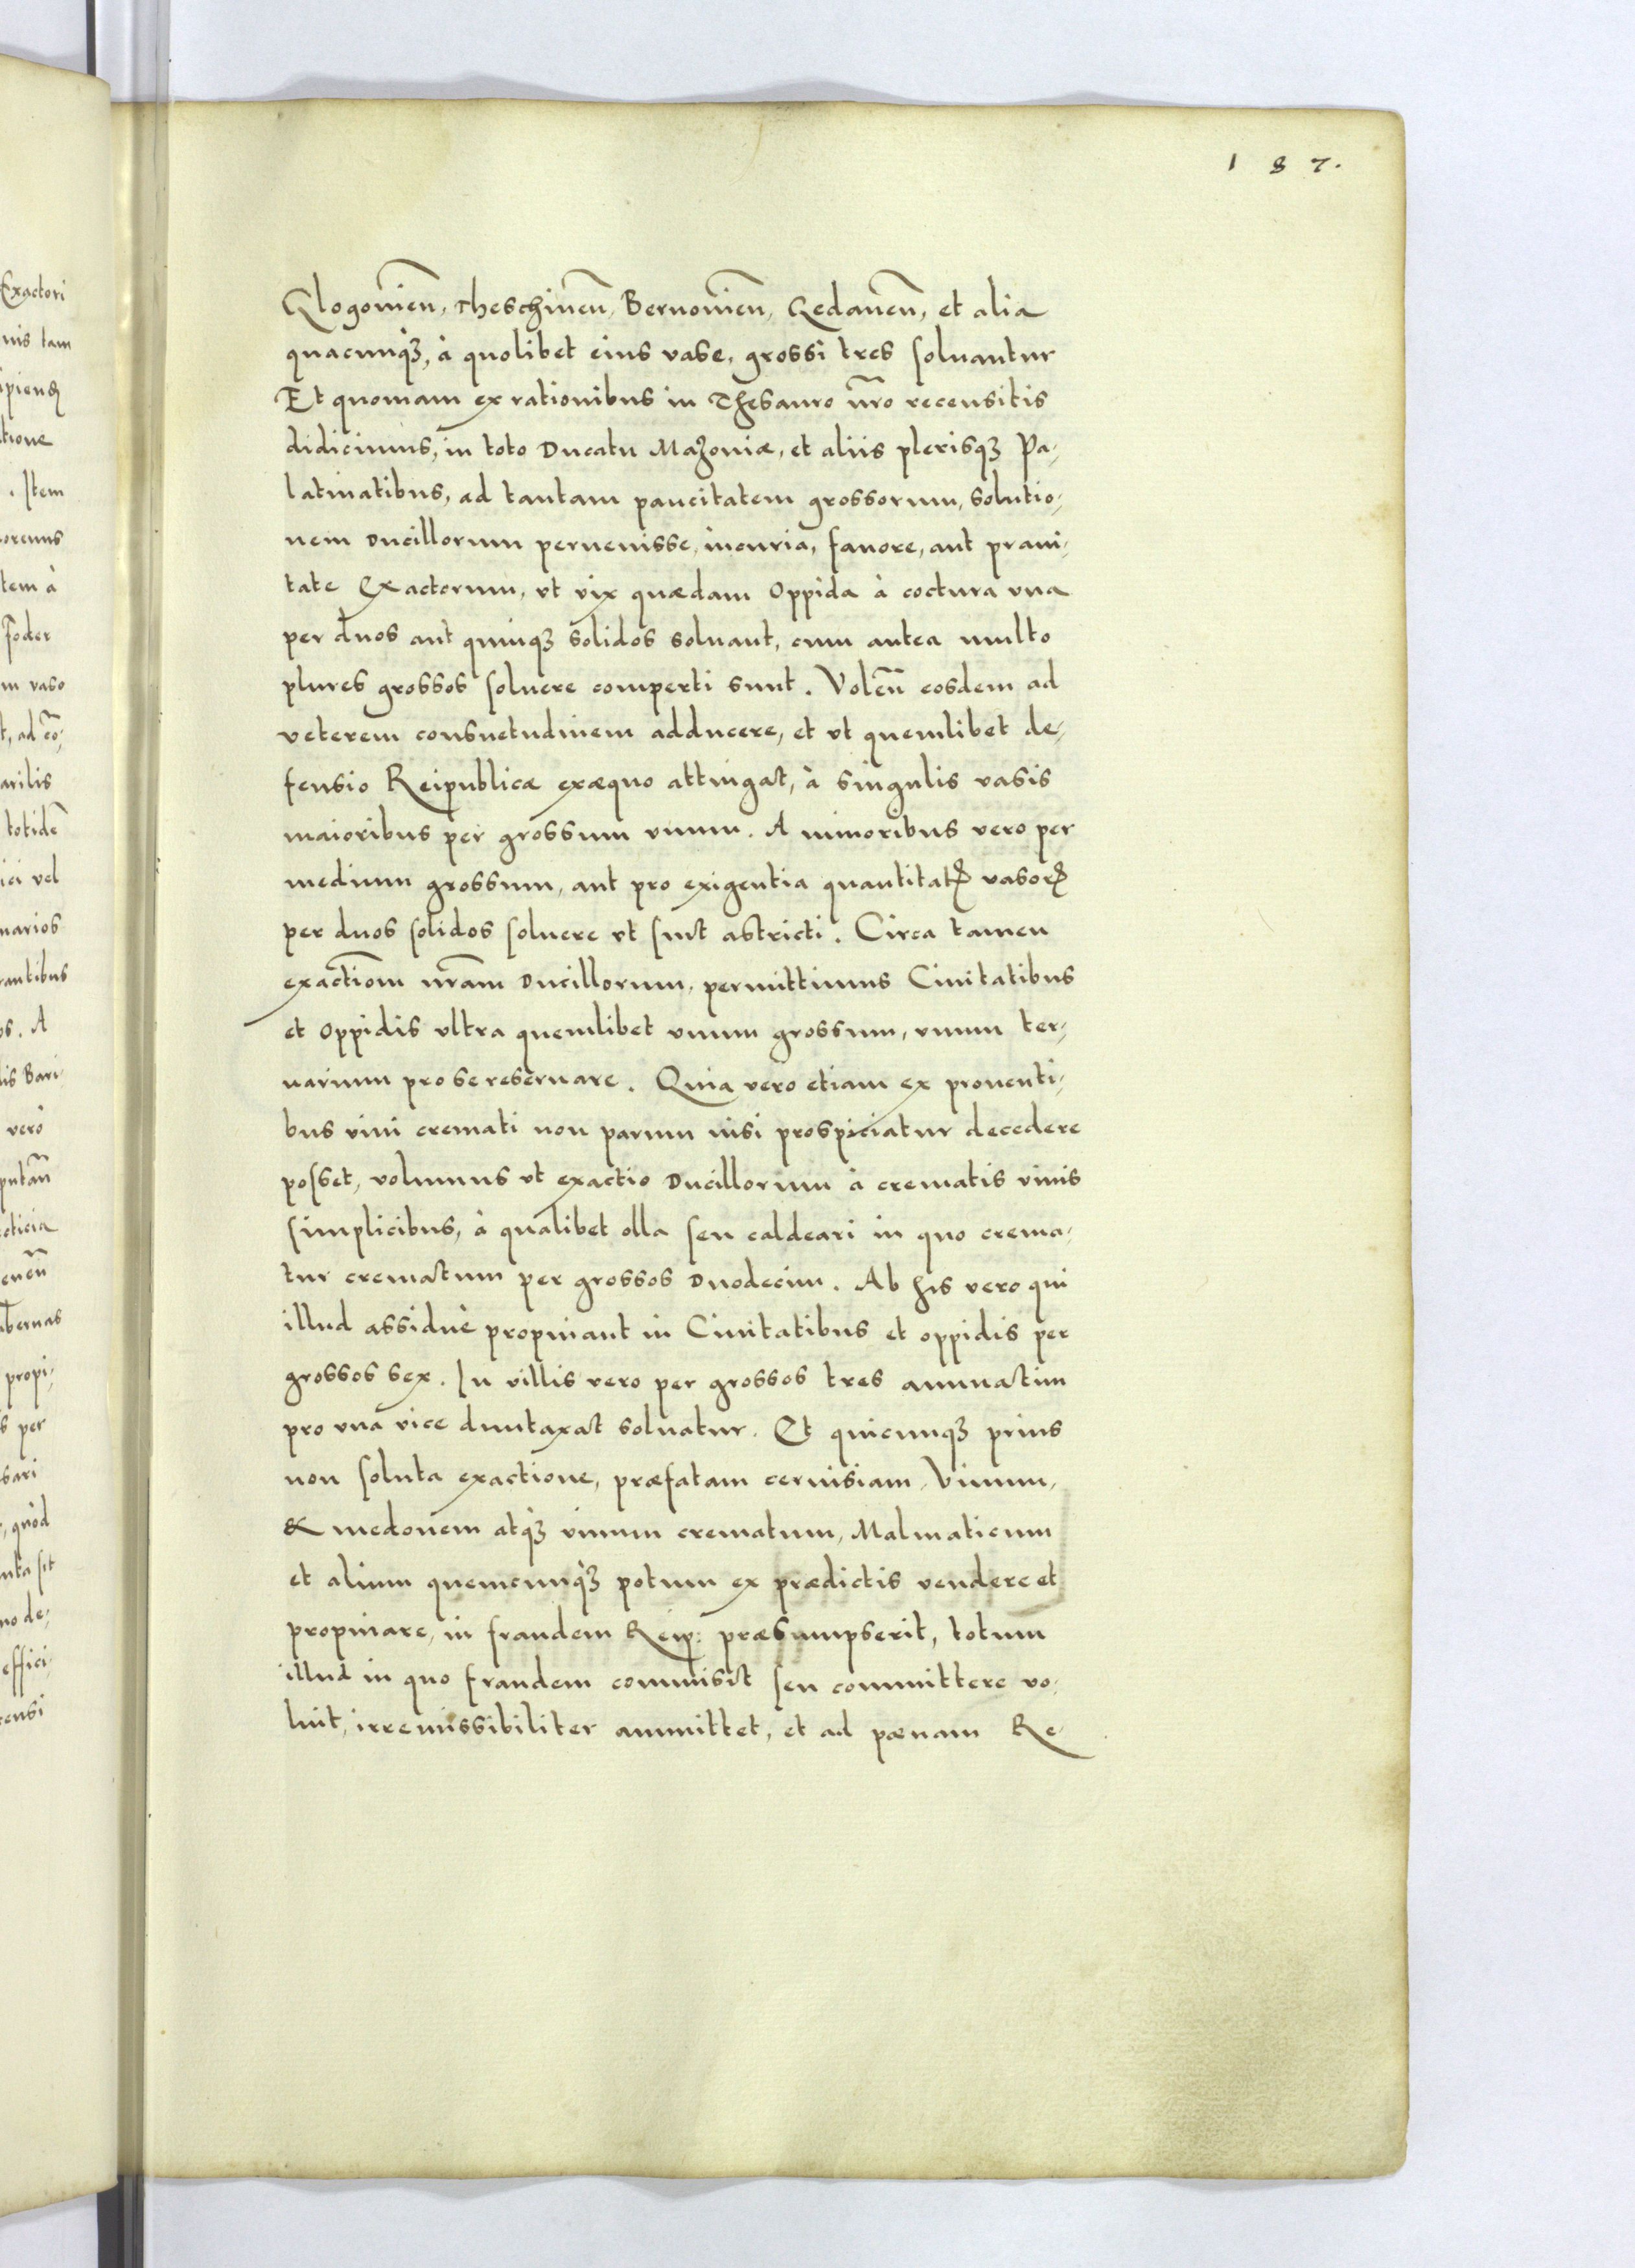 187.
Glogovien̄, Theschinen̄, Bernovien̄, Gedanen̄, et alia
quacunqꝫ, à quolibet eius vase, grossi tres soluantur
Et quoniam ex rationibus in Thesauro nr̄o recensitis
didicimus, in toto Ducatu Mazoniæ, et aliis plerisqꝫ Pa-
latinatibus, ad tantam paucitatem grossorum, solutio-
nem Ducillorum pervenisse, incuria, fauore, aut praui-
tate Exactorum, vt vix quædam Oppida à coctura vna
per duos aut quinqꝫ solidos soluant, cum antea multo
plures grossos soluere comperti sunt. Volen̄ eosdem ad
veterem consuetudinem adducere, et vt quemlibet de-
fensio Reipublicæ exæquo attingat, à singulis vasis
maioribus per grossum vnum. A minoribus vero per
medium grossum, aut pro exigentia quantitatꝭ vasorꝝ
per duos solidos soluere vt sint astricti. Circa tamen
exactiom̄ nr̄am Ducillorum, permittimus Ciuitatibus
et Oppidis vltra quemlibet vnum grossum, vnum ter-
narium pro se reseruare. Quia vero etiam ex prouenti-
bus vini cremati non parum nisi prospiciatur decedere
posset, volumus vt exactio Ducillorum à crematis vinis
simplicibus, à qualibet olla seu caldeari in quo crema-
tur crematum per grossos Duodecim. Ab his vero qui
illud assiduè propinant in Ciuitatibus et oppidis per
grossos sex. In villis vero per grossos tres annuatim
pro vna vice duntaxat soluatur. Et quicunqꝫ prius
non soluta exactione, præfatam ceruisiam, Vinum,
& medonem atqꝫ vinum crematum, Malmaticum
et alium quemcunqꝫ potum ex prædictis vendere et
propinare, in fraudem Reip: præsumpserit, totum
illud in quo fraudem commisit seu committere vo-
luit, irremissibiliter ammittet, et ad pænam Re-